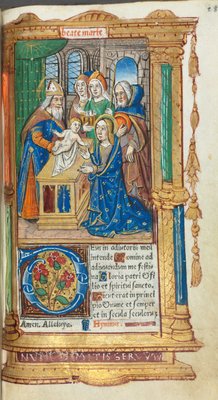 beate marie
Deus in adiutoriū meū
intende Domine ad
adiuvandum me festi
na Gloria patri et fi
lio et spiritui sancto.
Sicut erat in princi
pio et nunc et semper
et in secula seculorum
Amen. Alleluya. Hymnus.
NVNC DIMITIS SERVVM